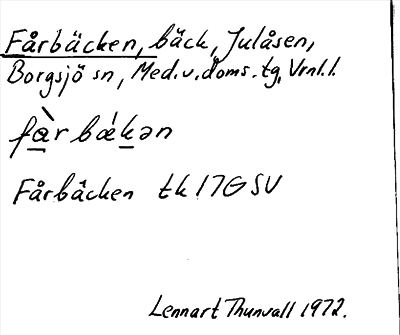 Fårbäcken, bäck, Julåsen,
Borgsjö sn, Med.v.doms.tg, Vrnl.l.
fàrbækən
Fårbäcken tk 17G SV
Lennart Thunvall 1972.